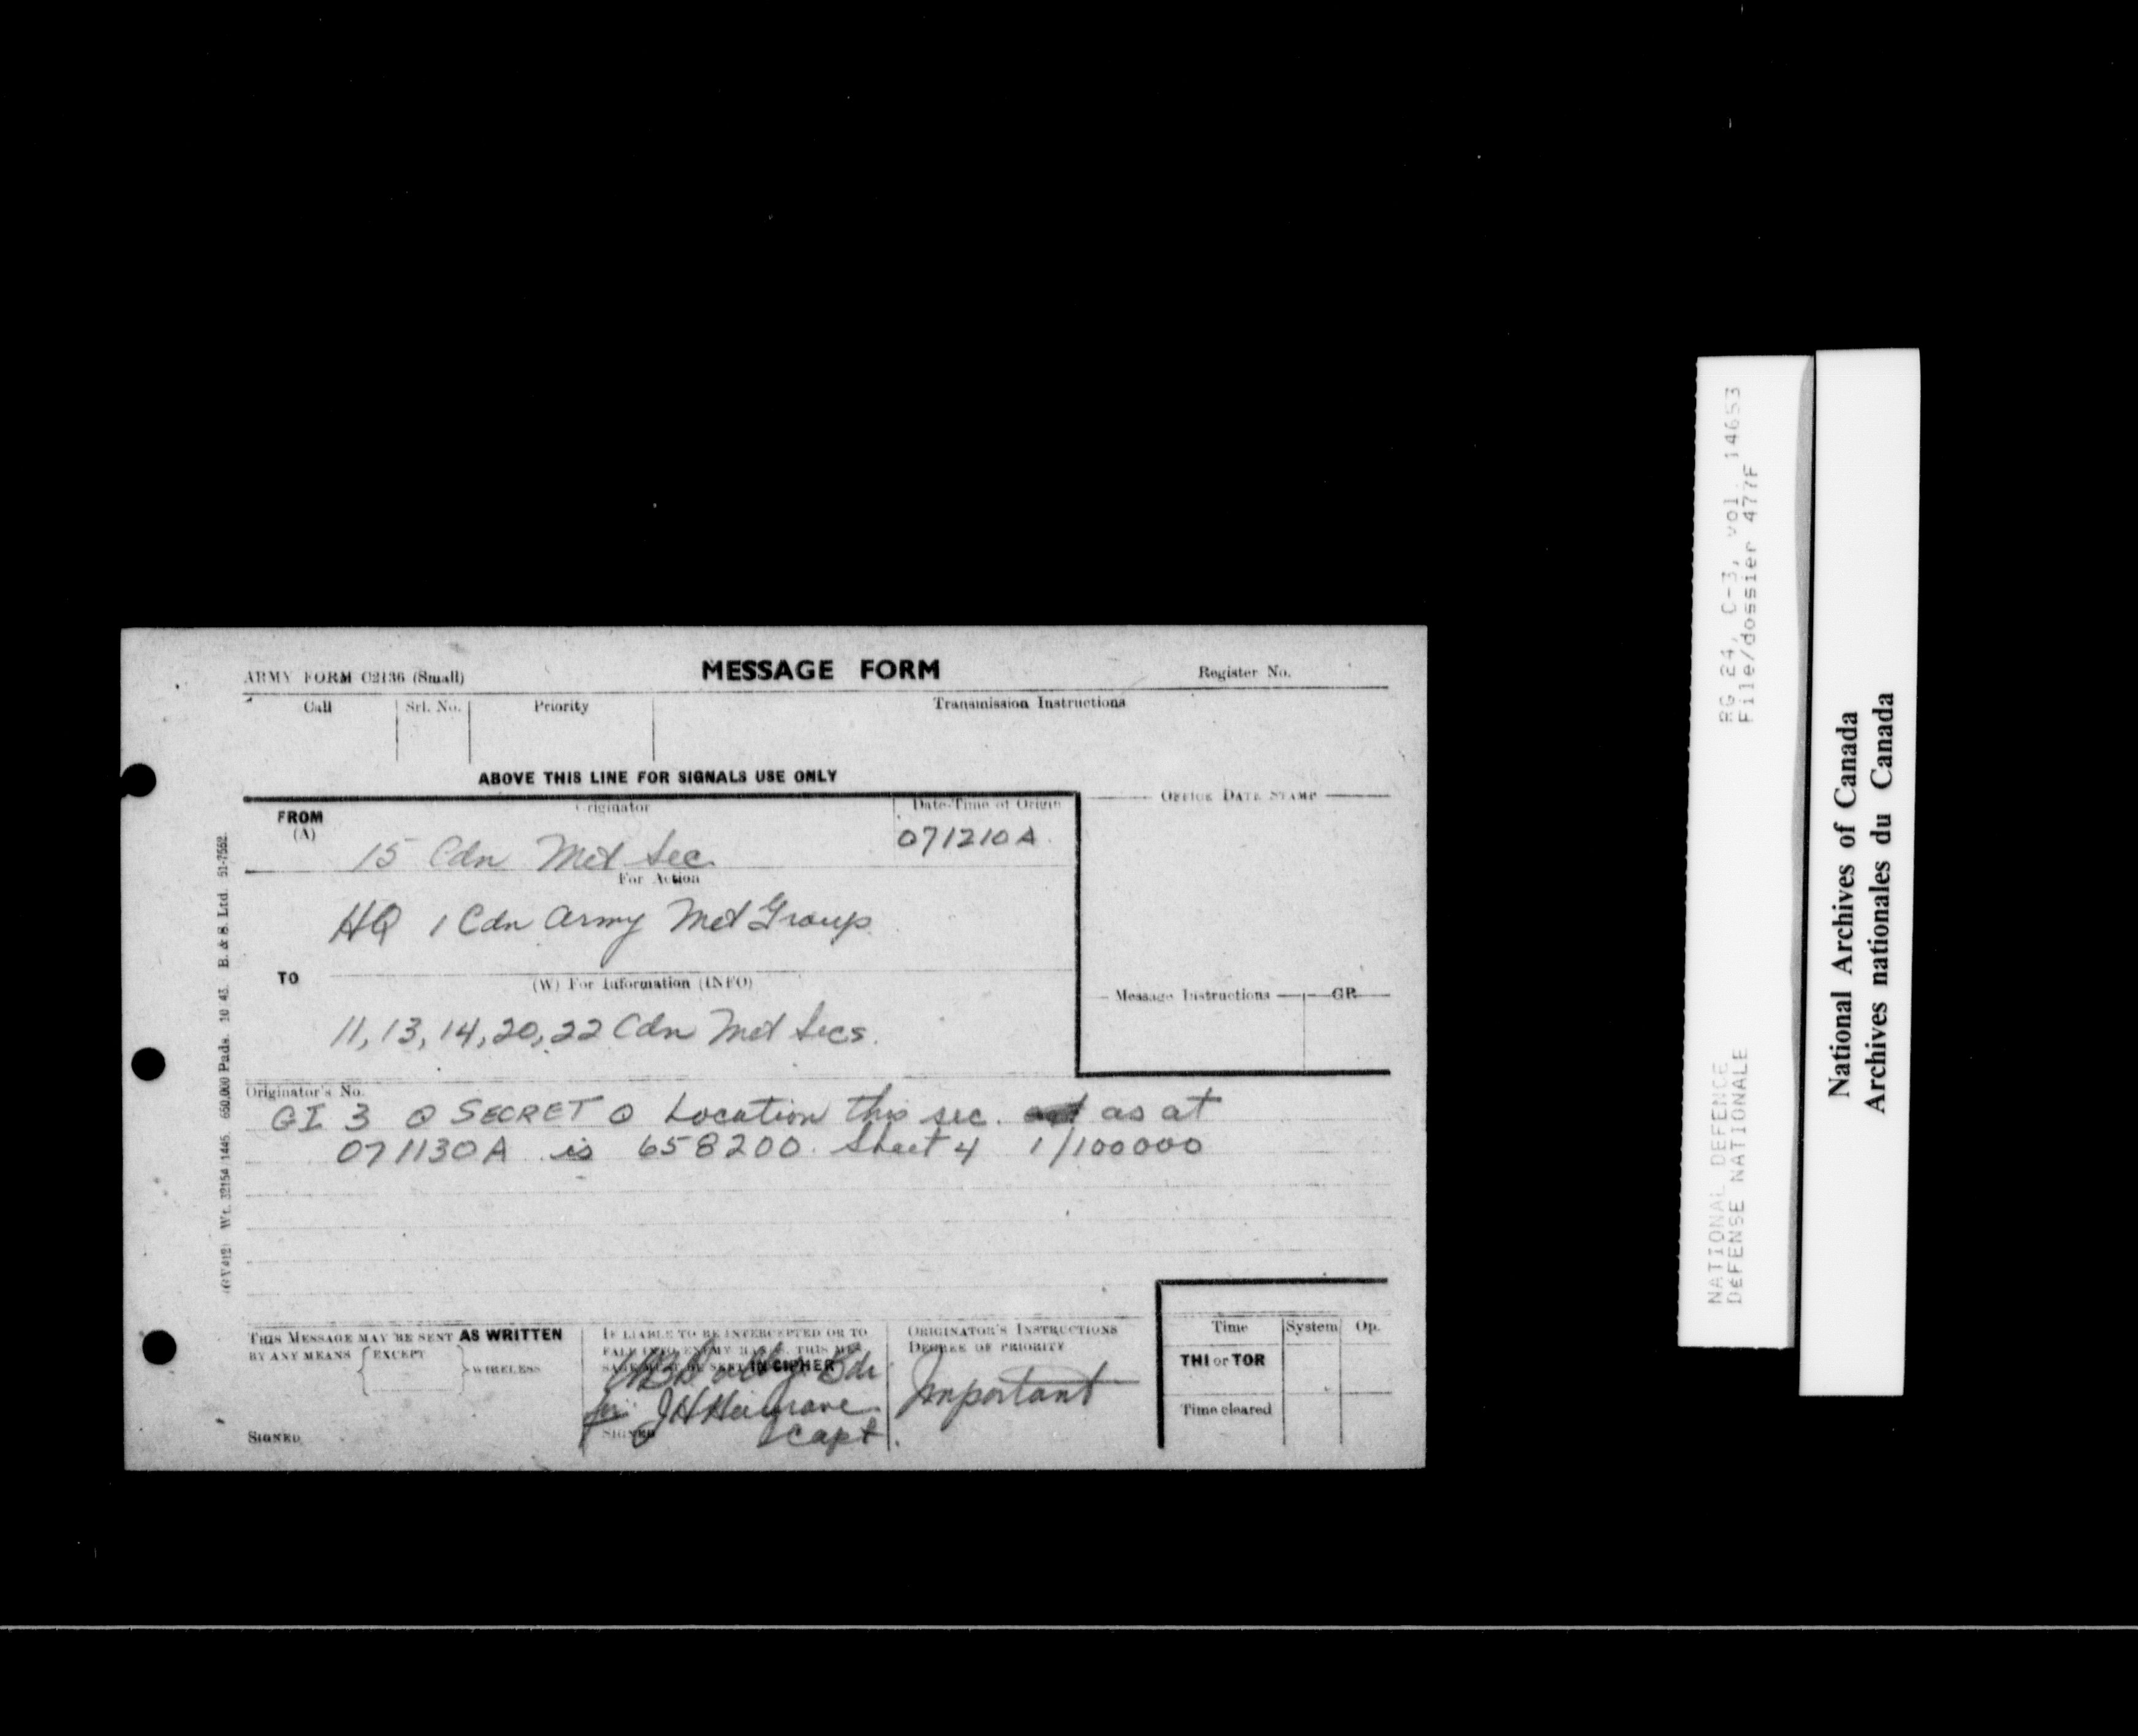 ARMY FORM C2136 (Small)
MESSAGE FORM
Register No.
Call Srl. No. Priority Transmission Instructions
ABOVE THIS LINE FOR SIGNALS USE ONLY
FROM (A) Originator
15 Cdn Met Sec.
Date-Time of Origin
071210A.
OFFICE DATE STAMP
For Action
HQ 1 Cdn Army Met Group
TO
(W) For Information (INFO)
11, 13, 14, 20, 22 Cdn Met Secs.
Message Instructions GR
Originator's No.
GI 3 O SECRET O Location this sec. as at
071130A is 658200. Sheet 4 1/100000
THIS MESSAGE MAY BE SENT AS WRITTEN
BY ANY MEANS { EXCEPT } WIRELESS
SIGNED
IF LIABLE TO BE INTERCEPTED OR TO
FALL INTO ENEMY HANDS, THIS MES-
SAGE MUST BE SENT IN CIPHER
Bdr
for J H
SIGNED
Capt.
ORIGINATOR'S INSTRUCTIONS
DEGREE OF PRIORITY
Important
Time System Op.
THI or TOR
Time cleared
Wt. 32154/1445. 650,000 Pads. 10/43. B. & S. Ltd. 51-7562.
RG 24, C-3, vol. 14653
File/dossier 477F
NATIONAL DEFENCE
DéFENSE NATIONALE
National Archives of Canada
Archives nationales du Canada